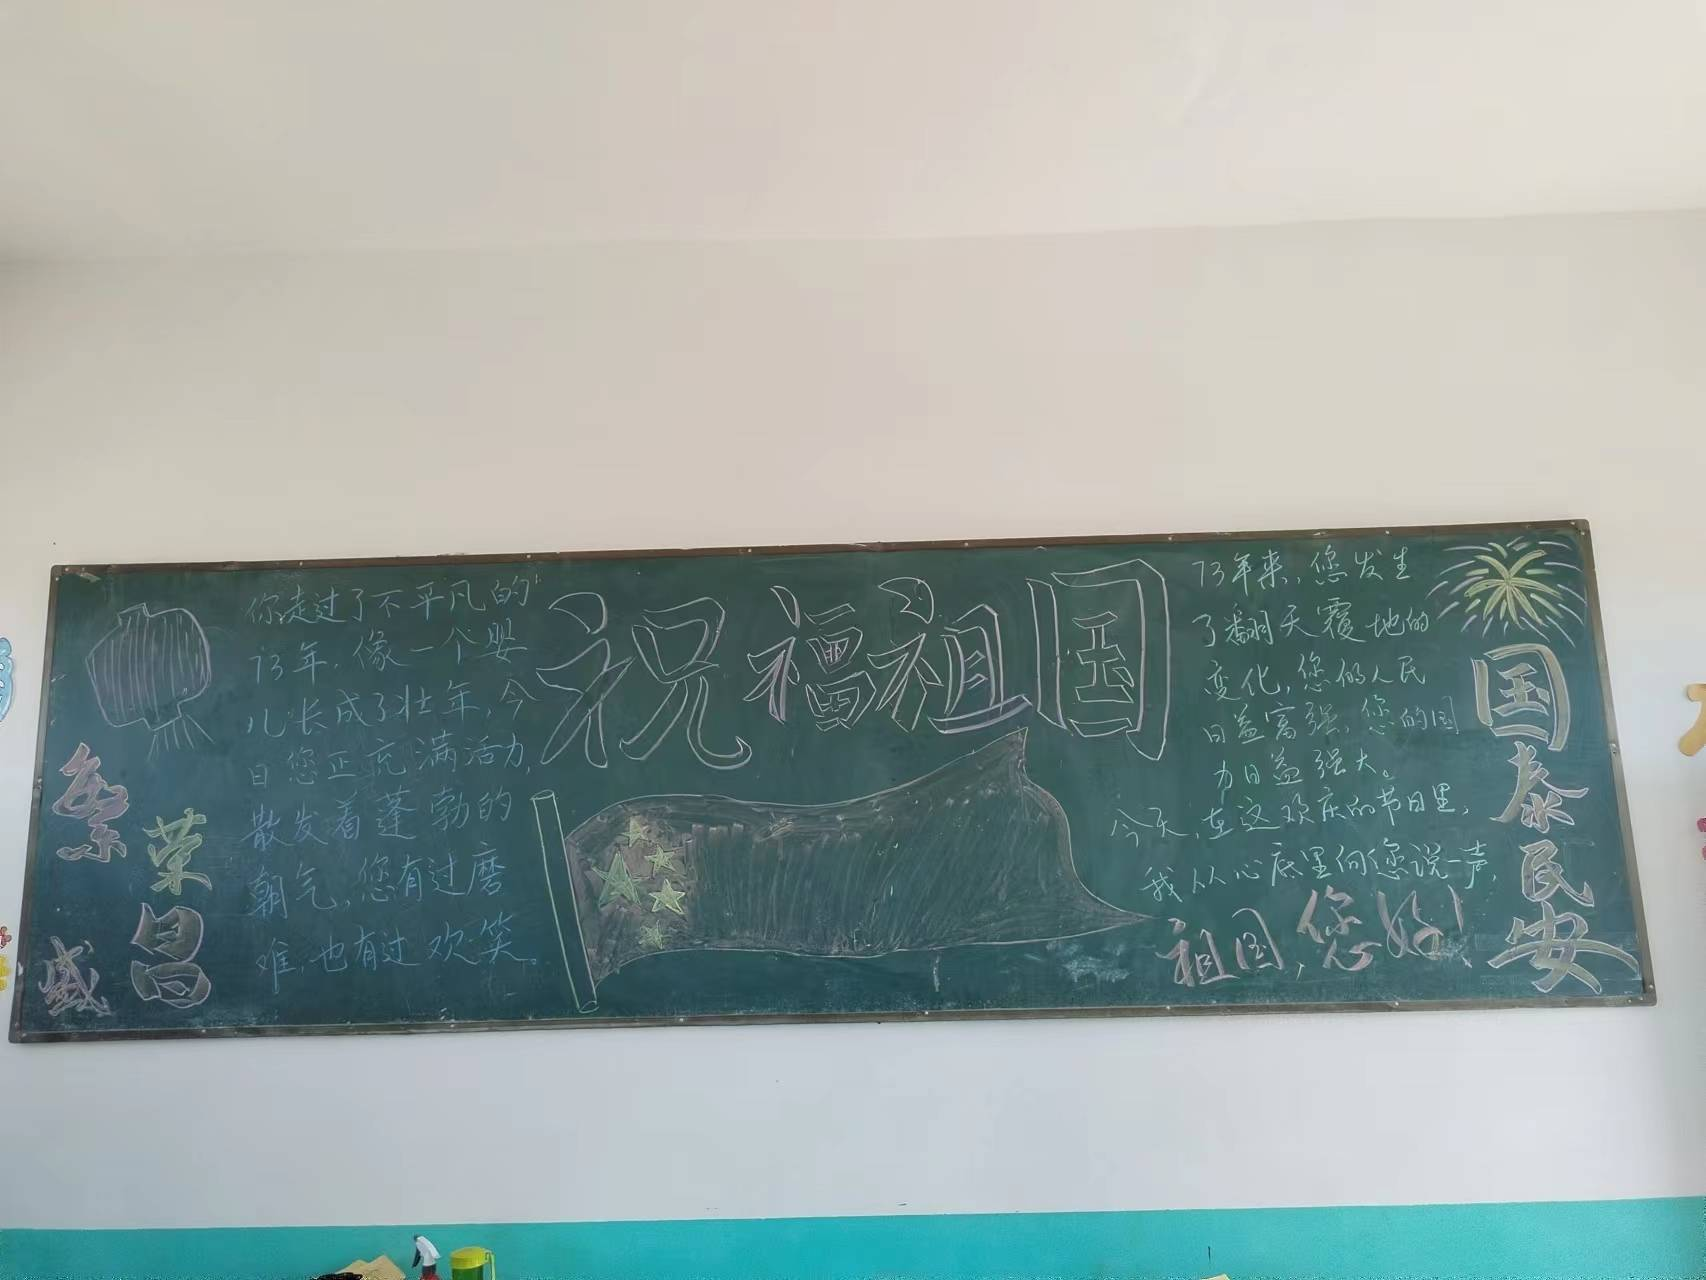 祝福祖国
繁
荣
昌
盛
你走过了不平凡的
73年,像一个婴
儿长成了壮年,今
日您正充满活力,
散发着蓬勃的
朝气,您有过磨
难,也有过欢笑。
73年来,您发生
了翻天覆地的
变化,您的人民
日益富强,您的国
力日益强大。
今天,在这欢庆的节日里,
我从心底里向您说一声,
祖国,您好!
国
泰
民
安